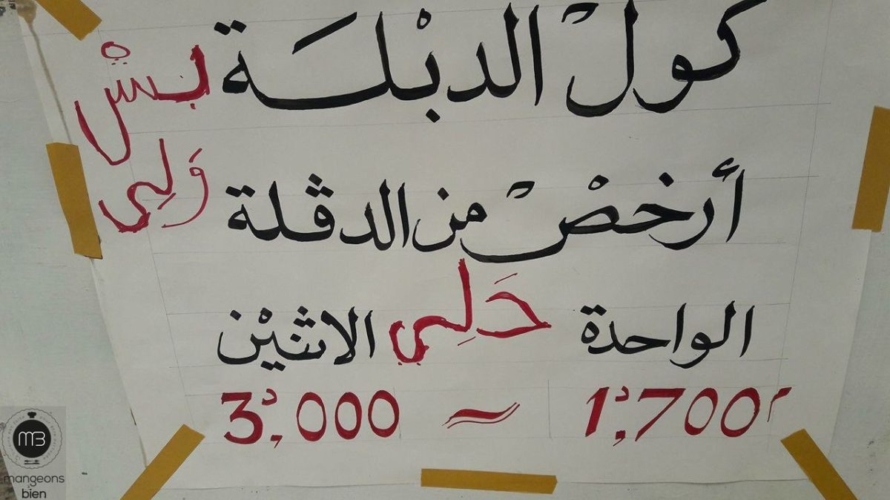 كولْ الدبْلة
بسْ
أرخصْ من الدڤلة
وَلي
الواحدة حَلي الاثنيْن
1د,700م ~ 3د,000
MB
mangeons
bien